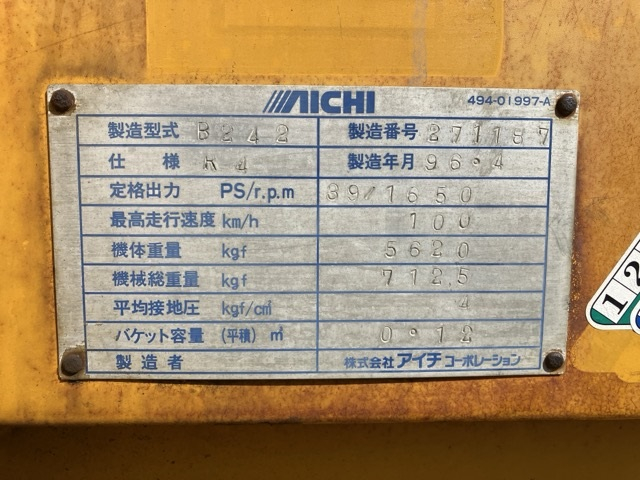 AICHI 494-01997-A
製造型式 B242 製造番号 271187
仕様 R4 製造年月 96.4
定格出力 PS/r.p.m 39/1650
最高走行速度 km/h 100
機体重量 kgf 5620
機械総重量 kgf 7125
平均接地圧 kgf/cm² 4
バケット容量 (平積) m³ 0.12
製造者 株式会社アイチコーポレーション
1 2